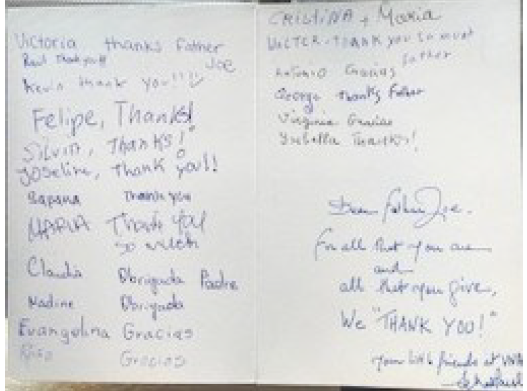 Victoria thanks Father Joe
Raul Thank you!!
Kevin thank you!!!!
Felipe, Thanks!
Silvia, Thanks!
Joseline, Thank you!!
Sapana Thank you
MARIA Thank YOU
so much
Claudia Obrigada Padre
Nadine Obrigada
Evangelina Gracias
Gracias
CRISTINA + Maria
VICTOR - THANK you so much
father
Antonio Gracias
George thanks Father
Virginia Gracias
Ysabella Thanks!
Dear Father Joe.
For all that you are
and
all that you give,
We "THANK YOU!"
your little friends at